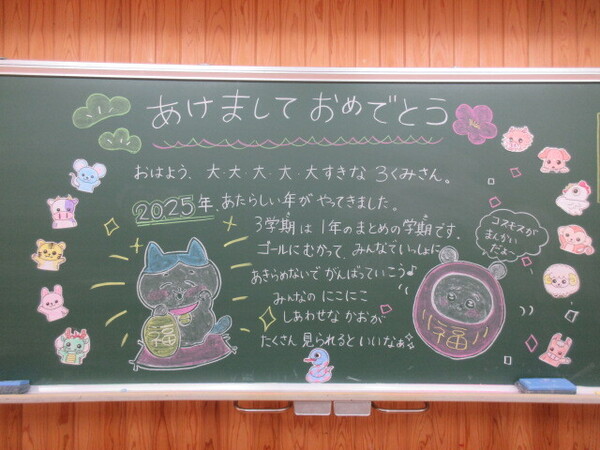 あけまして おめでとう
おはよう、大・大・大・大・大すきな 3くみさん。
2025年、あたらしい年が やってきました。
3学期は 1年のまとめの学期です。
ゴールにむかって、みんなでいっしょに
あきらめないで がんばっていこう♪
みんなの にこにこ
しあわせな かおが
たくさん 見られると いいなぁ
コスモスが
まんかい
だよ
福
福